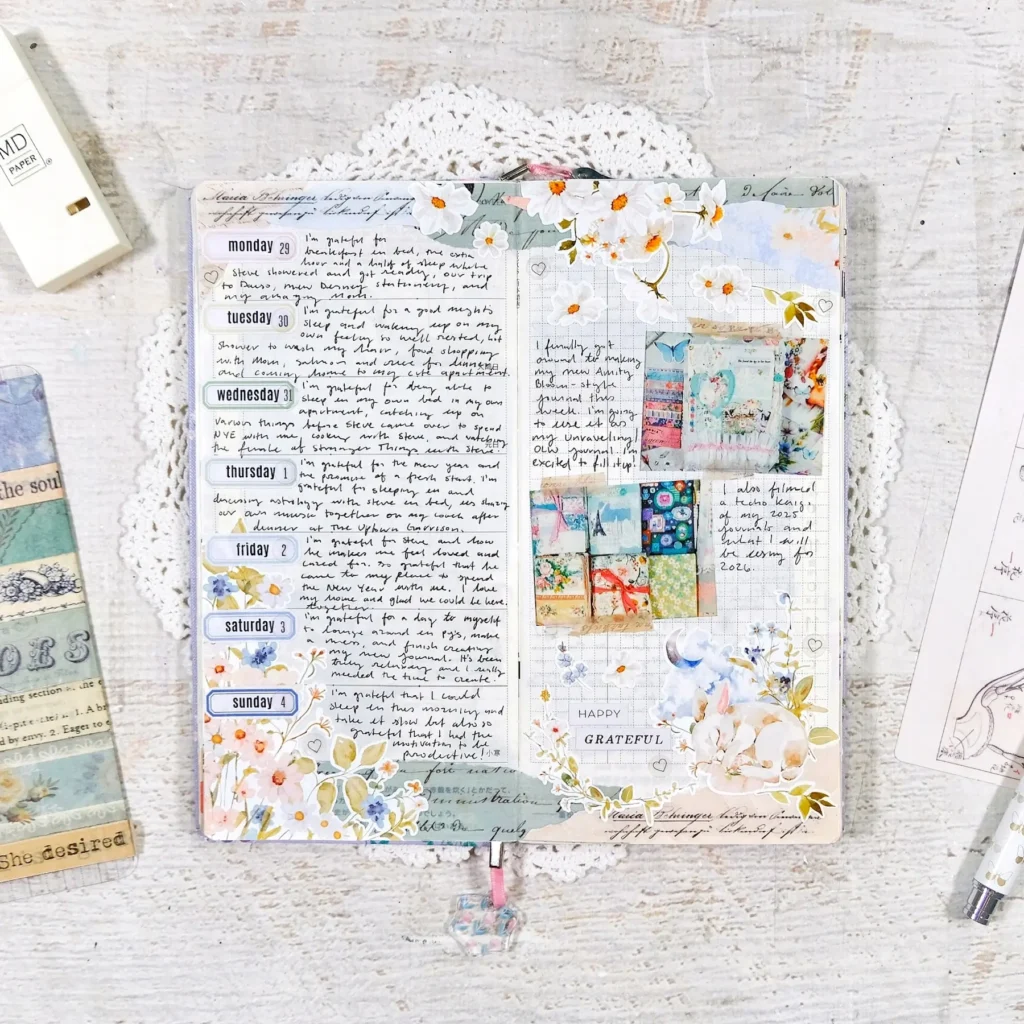 MD
PAPER
monday 29
I'm grateful for
breakfast in bed, the extra
hour and a half of sleep while
Steve showered and got ready, our trip
to Daiso, new Disney stationery, and
my amazing Mom.
tuesday 30
I'm grateful for a good night's
sleep and waking up on my
own feeling so well rested, hot
shower to wash my hair, food shopping
with Mom, salmon and rice for dinner
and coming home to my cute apartment.
wednesday 31
I'm grateful for being able to
sleep in my own bed in my own
apartment, catching up on
various things before Steve came over to spend
NYE with me, cooking with Steve, and watching
the finale of Stranger Things with Steve.
元日
thursday 1
I'm grateful for the new year and
the promise of a fresh start. I'm
grateful for sleeping in and
discussing astrology with Steve in bed, us sharing
our own music together on my couch after
dinner at The Uptown Garrison.
friday 2
I'm grateful for Steve and how
he makes me feel loved and
cared for. So grateful that he
came to my place to spend
the New Year with me. I love
my home and glad we could be here
together.
saturday 3
I'm grateful for a day to myself
to lounge around in PJ's, make
a mess, and finish creating
my new journal. It's been
truly relaxing and I really
needed the time to create.
sunday 4
I'm grateful that I could
sleep in this morning and
take it slow but also so
grateful that I had the
motivation to be
productive!
小寒
I finally got
around to making
my new Amity
Bloom-style
journal this
week. I'm going
to use it as
my Unraveling
OLW journal. I'm
excited to fill it up!
I also filmed
a techo kaigi
of my 2025
journals and
what I will
be using for
2026.
HAPPY
GRATEFUL
the soul
OES
ding section
by envy. 2. Eager to
She desired